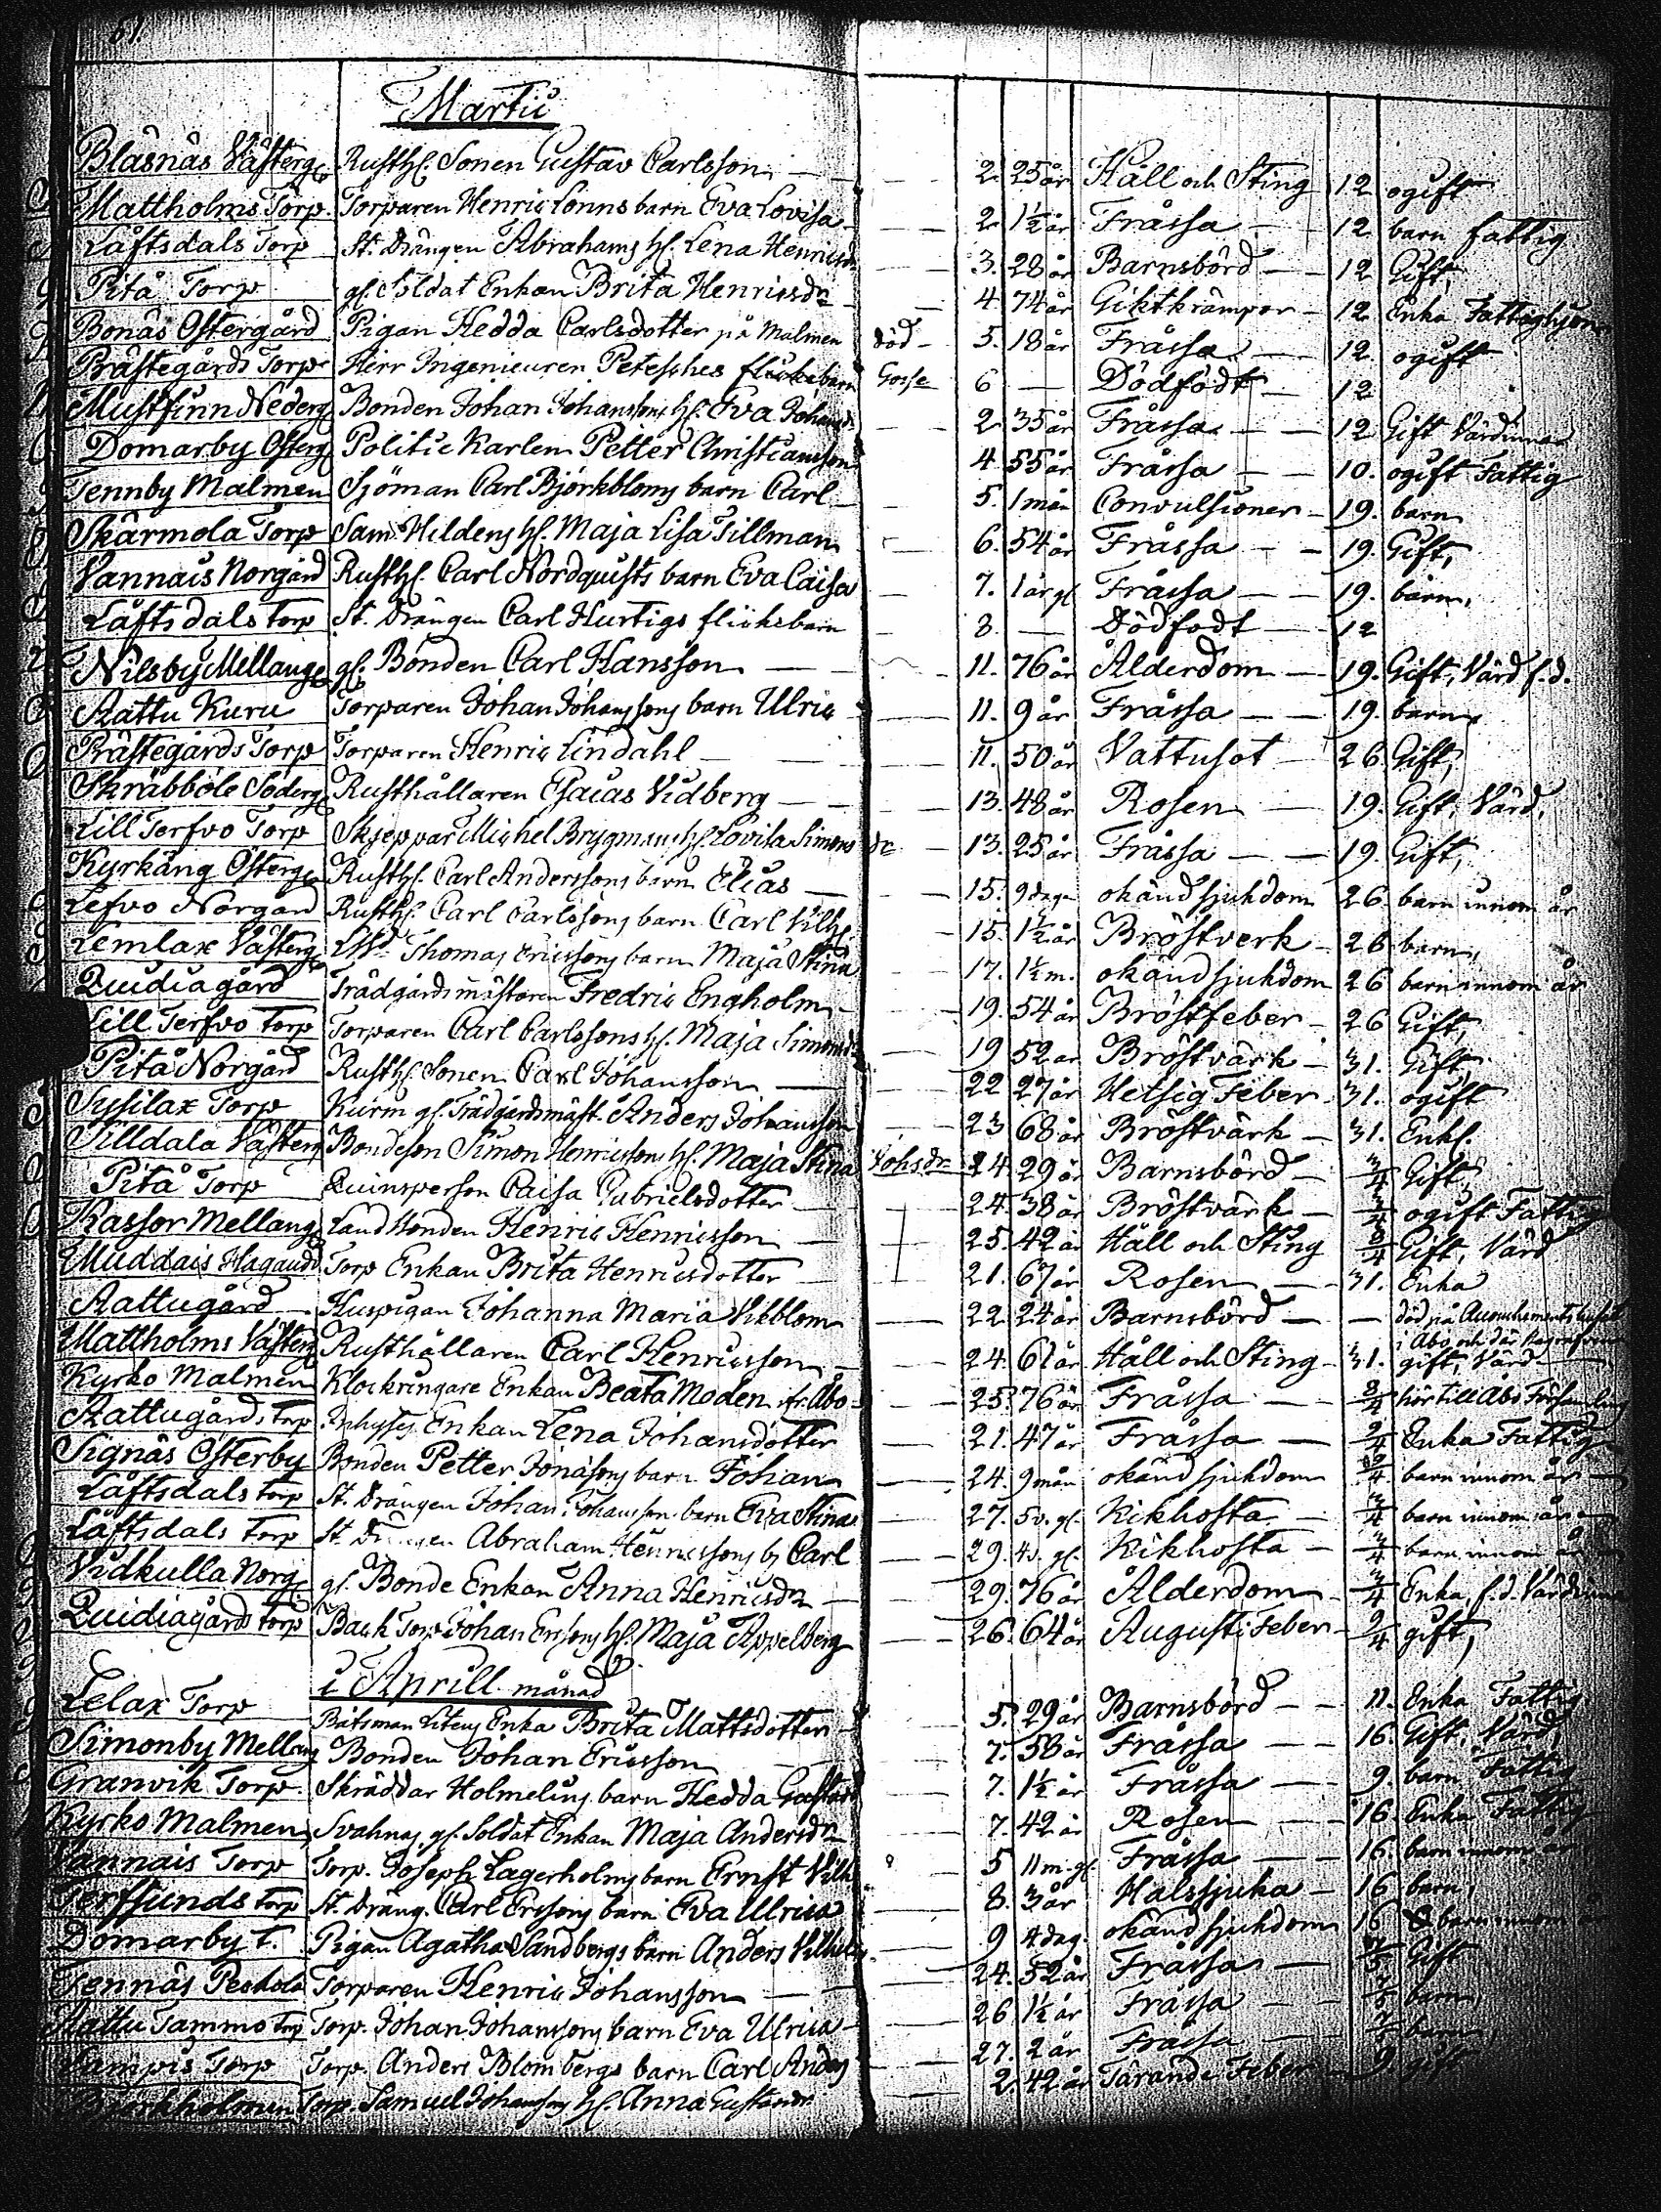 61.
Martii
Blasnäs Västerg Rusth. Sonen Gustav Carlsson — 2. 25 år Håll och Sting 12 ogift
Mattholms Torp. Torparen Henric Lönns barn Eva Lovisa — 2. 1½ år Fråssa — 12 barn fattig
Låftsdals Torp St. Drängen Abrahams h. Lena Henricsd. — 3. 28 år Barnsbörd — 12 Gift,
Pitå Torp gl. Soldat Enkan Brita Henricsdr — 4. 74 år Giktkrämpor — 12 Enka Fattighjon
Bonäs Östergård Pigan Hedda Carlsdotter på Malmen död — 5. 18 år Fråssa — 12. ogift
Prästegårds Torp Herr Ingenieuren Petesches flickebarn Gosse 6 — Dödfödt — 12
Mustfinn Nederg Bonden Johan Johanssons h. Eva Johansd. — 2 35 år Fråssa — 12 Gift Värdinna
Domarby Österg Politie Karlen Petter Christiansson 4. 55 år Fråssa — 10. ogift Fattig
Tennby Malmen Sjöman Carl Björkbloms barn Carl — 5. 1 mån Convulsioner — 19. barn
Skärmola Torp Sam. Hildens h. Maja Lisa Tillman — 6. 54 år Fråssa — 19. Gift,
Vannais Norgård Rusth. Carl Nordquists barn Eva Caisa — 7. 1 år gl Fråssa — 19. barn,
Låftsdals Torp St. Drängen Carl Hurtigs flickebarn — 8. — Dödfödt — 12
Nilsby Mellang gl. Bonden Carl Hansson — 11. 76 år Ålderdom — 19. Gift, Värd f.d.
Aattu Kuru Torparen Johan Johanssons barn Ulric — 11. 9 år Fråssa — 19. barn,
Prästegårds Torp Torparen Henric Lindahl — 11. 50 år Vattusot — 26. Gift,
Skräbböle Söderg Rusthållaren Esaias Vidberg — 13. 48 år Rosen — 19. Gift, Värd,
Lill Terfvo Torp Skeppar Michel Brygmans h. Lovisa Simons dr — 13. 25 år Fråssa — 19. Gift,
Kyrkäng Österg Rusth. Carl Anderssons barn Elias — 15. 9 dagar okänd sjukdom 26. barn innom år
Lefvo Norgård Rusth. Carl Carlssons barn Carl Vilh. — 15. 1½ år Bröstverk — 26 barn,
Lemlax Västerg Thomas Ericssons barn Maja Stina — 17. 1½ m. okänd sjukdom 26 barn innom år
Quidiagård Trädgårdsmästaren Fredric Engholm — 19. 54 år Bröstfeber — 26 Gift,
Lill Terfvo Torp Torparen Carl Carlssons h. Maja Simonsdr — 19 52 år Bröstvärk — 31. Gift,
Pitå Norgård Rusth. Sonen Carl Johansson — 22 27 år Hetsig Feber 31. ogift
Sysilax Torp Kurm gl. Trädgårdsmäst. Anders Johansson — 23 68 år Bröstvärk — 31. Enkl.
Silldala Västerg Bondeson Simon Henricssons h. Maja Stina Johsdr 24. 29 år Barnsbörd — 3/4 Gift,
Pitå Torp Quinsperson Caisa Gabrielsdotter — 24. 38 år Bröstvärk — 3/4 ogift Fattig
Kassor Mellang Landbonden Henric Henricsson — 25. 42 år Håll och Sting 3/4 Gift, Värd
Muddais Hagaudd Torp Enkan Brita Henricsdotter — 21. 67 år Rosen — 31. Enka
Aattugård Huspigan Johanna Maria Vikblom 22 24 år Barnsbörd — — död på Accouchementshuset
i Åbo och där begrafven
Mattholms Västerg Rusthållaren Carl Henricsson — 24. 61 år Håll och Sting — 31. gift, Värd —
Kyrko Malmen Klockringare Enkan Beata Moden fr. Åbo — 25. 76 år Fråssa — 2/4 hör till Åbo Församling
Aattugårds Torp Inhyses Enkan Lena Johansdotter — 21. 47 år Fråssa — 2/4 Enka Fattig
Signäs Österby Bonden Petter Jonasons barn Johan — 24. 9 mån okänd sjukdom 2/4 barn innom år
Låftsdals Torp St. Drängen Johan Johansson barn Eva Stina — 27. 5 v. gl. Kikhosta — 3/4 barn innom år
Låftsdals Torp St. Drängen Abraham Henricssons b. Carl — 29. 4 v. gl. Kikhosta — 3/4 barn innom år
Vidkulla Norg gl. Bonde Enkan Anna Henricsdr — 29. 76 år Ålderdom — 3/4 Enka, f.d. Värdinna
Quidiagårds Torp Back Torp. Johan Ersons h. Maja Appelberg — 26. 64 år Augusti Feber — 2/4 gift,
i Aprill månad
Lelax Torp Båtsman Litens Enka Brita Mattsdotter — 5. 29 år Barnsbörd — 11. Enka Fattig
Simonby Mellang Bonden Johan Ericsson — 7. 58 år Fråssa — 16. Gift, Värd,
Granvik Torp. Skräddar Holmelins barn Hedda Gustava 7. 1½ år Fråssa — 9. barn Fattig
Kyrko Malmen Svahns, gl. Soldat Enkan Maja Andersdr — 7. 42 år Rosen — 16. Enka Fattig
Vannais Torp Torp. Joseph Lagerholms barn Ernst Vilh — 5 11 m. gl. Fråssa — 16. barn innom år
Terfsunds Torp St. Dräng. Carl Ersons barn Eva Ulrica — 8. 3 år Halssjuka — 16 barn,
Domarby T. Pigan Agatha Sandbergs barn Anders Vilhelm 9 4 dag. okänd sjukdom 16 barn innom år
Tennäs Peckola Torparen Henric Johansson — 24. 52 år Fråssa — Gift
Aattu Tammo Torp Torp. Johan Johanssons barn Eva Ulrica — 26 1½ år Fråssa — barn,
Sampis Torp Torp. Anders Blombergs barn Carl Anders — 27. 2 år Fråssa — barn,
Björkholmen Torp. Samuel Johanssons h. Anna Gustavsdr — 2. 42 år Tärande Feber — 9 gift